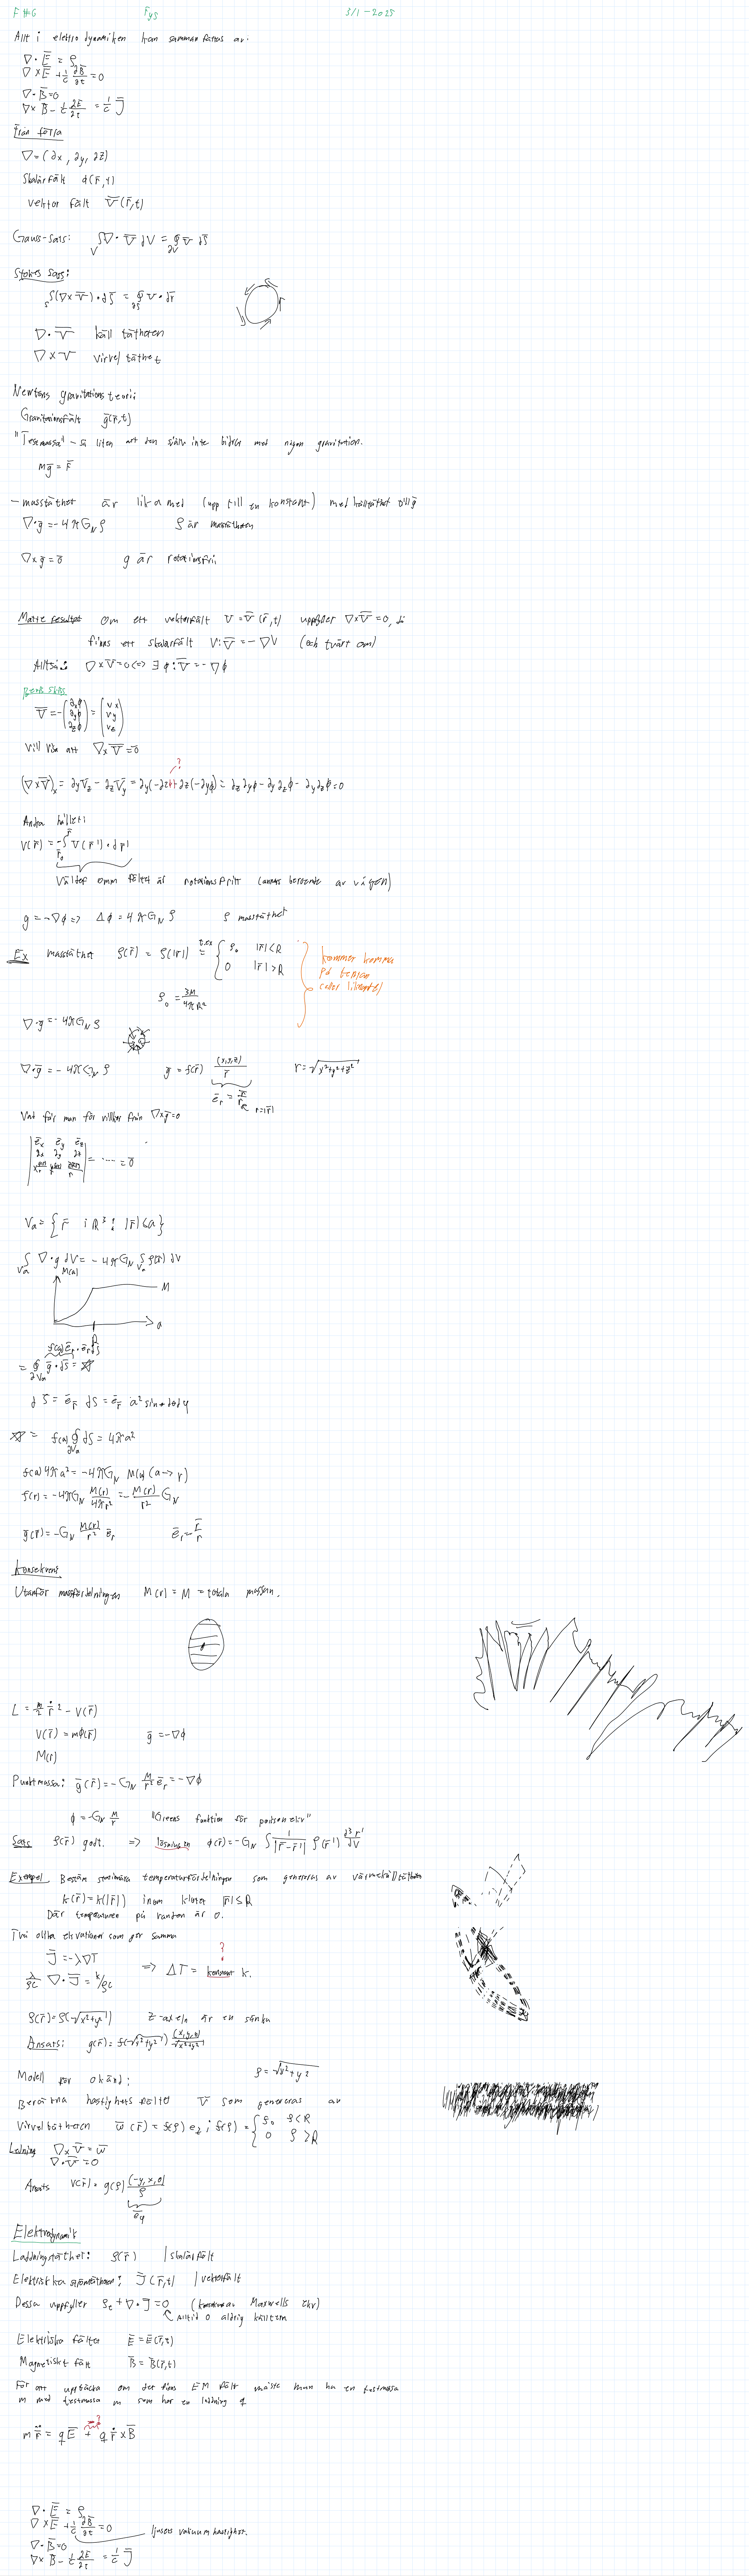 F #6 Fys 3/3-2025
Allt i elektrodynamiken kan sammanfattas av:
∇·E̅ = ρ
∇×E̅ + 1/c ∂B̅/∂t = 0
∇·B̅ = 0
∇×B̅ - 1/c ∂E̅/∂t = 1/c J̅
Från förra
∇ = (∂x, ∂y, ∂z)
Skalärfält φ(r̅,t)
vektor fält V̅(r̅,t)
Gauss-sats: ∫_V ∇·V̅ dV = ∮_∂V V̅ dS̅
Stokes sats:
∫_S (∇×V̅)·dS̅ = ∮_∂S V·dr̅
∇·V̅ källtätheten
∇×V virveltäthet
Newtons gravitationsteori:
Gravitationsfält g̅(r̅,t)
"Testmassa" - så liten att den själv inte bidrar med någon gravitation.
m g̅ = F̅
- masstäthet är lika med (upp till en konstant) med källtäthet till g̅
∇·g̅ = -4πG_N ρ ρ är masstätheten
∇×g̅ = 0̅ g är rotationsfri
Matte resultat Om ett vektorfält V̅ = V̅(r̅,t) uppfyller ∇×V̅ = 0, så
finns ett skalärfält V: V̅ = -∇V (och tvärt om)
Alltså: ∇×V = 0 <=> ∃ φ: V̅ = -∇φ
V̅ = -(∂xφ ∂yφ ∂zφ) = (Vx Vy Vz)
Vill visa att ∇×V̅ = 0
?
(∇×V̅)_x = ∂yV_z - ∂zV_y = ∂y(-∂zφ) + ∂z(-∂yφ) = ∂z∂yφ - ∂y∂zφ - ∂y∂zφ = 0
Andra hållet:
V(r̅) = -∫_r̅₀^r̅ V(r̅')·dr̅'
Väldef omm fältet är rotationsfritt (annars beroende av vägen)
g = -∇φ => Δφ = 4πG_N ρ ρ masstäthet
Ex masstäthet ρ(r̅) = ρ(|r̅|) t.ex = { ρ₀ |r̅|<R
0 |r̅|>R
kommer komma
på tentan
ρ₀ = 3M/4πR³
∇·g = -4πG_N ρ
∇·g̅ = -4πG_N ρ g̅ = f(r) (x,y,z)/r r = √x²+y²+z²
e̅_r = r̅/r r=|r̅|
Vad får man för villkor från ∇×g̅ = 0
| e̅x e̅y e̅z
∂x ∂y ∂z
| = ... = 0̅
Va = { r̅ i R³: |r̅|<a }
∫_Va ∇·g dV = -4πG_N ∫_Va ρ(r̅) dV
M(a)
M
a
R
f(a) e̅_r·e̅_r dS
= ∮_∂Va g̅·dS̅ = ☆
dS̅ = e̅_r dS = e̅_r a² sinθ dθ dφ
☆ = f(a) ∮_∂Va dS = 4πa²
f(a) 4πa² = -4πG_N M(a) (a→r)
f(r) = -4πG_N M(r)/4πr² = -M(r)/r² G_N
g̅(r̅) = -G_N M(r)/r² e̅_r e̅_r = r̅/r
Utanför massfördelningen M(r) = M = totala massan.
L = m/2 ṙ̅² - V(r̅)
V(r̅) = mφ(r̅) g̅ = -∇φ
M(r)
Punktmassa: g̅(r̅) = -G_N M/r² e̅_r = -∇φ
φ = -G_N M/r "Greens funktion för poisson ekv"
Sats ρ(r̅) godt. => lösningen φ(r̅) = -G_N ∫ 1/|r̅-r̅'| ρ(r̅') d³r'
dV
Exempel. Bestäm stationära temperaturfördelningen som genereras av värmekälltätheten
k(r̅) = k(|r̅|) inom klotet |r̅|≤R
Där temperaturen på randen är 0.
Två olika ekvationer som gör samma
?
J̅ = -λ∇T => ΔT = konstant k.
λ/ρc ∇·J̅ = k/ρc
ρ(r̅) = ρ(√x²+y²) z-axeln är en sänka
Ansats: g(r̅) = f(√x²+y²) (x,y,0)/√x²+y²
Modell för okänd: ρ = √x²+y²
Beräkna hastighetsfältet V̅ som genereras av
Virveltätheten w̅(r̅) = f(ρ) e_z; f(ρ) = { ρ₀ ρ<R
0 ρ>R
Ledning ∇×V̅ = w̅
∇·V̅ = 0
Ansats V(r̅) = g(ρ) (-y,x,0)/ρ
e̅_φ
Elektrodynamik
Laddningstäthet: ρ(r̅) | skalärfält
Elektriska strömtätheten: J̅(r̅,t) | vektorfält
Dessa uppfyller ρ_t + ∇·J̅ = 0 (konsekvens av Maxwells ekv)
Alltid 0 aldrig källterm
Elektriska fältet E̅ = E̅(r̅,t)
Magnetiskt fält B̅ = B̅(r̅,t)
För att upptäcka om det finns EM fält måste man ha en testmassa
m med testmassa m som har en laddning q
m r̅̈ = q E̅ + q ṙ̅ × B̅
∇·E̅ = ρ
∇×E̅ + 1/c ∂B̅/∂t = 0
ljusets vakuum hastighet.
∇·B̅ = 0
∇×B̅ - 1/c ∂E̅/∂t = 1/c J̅